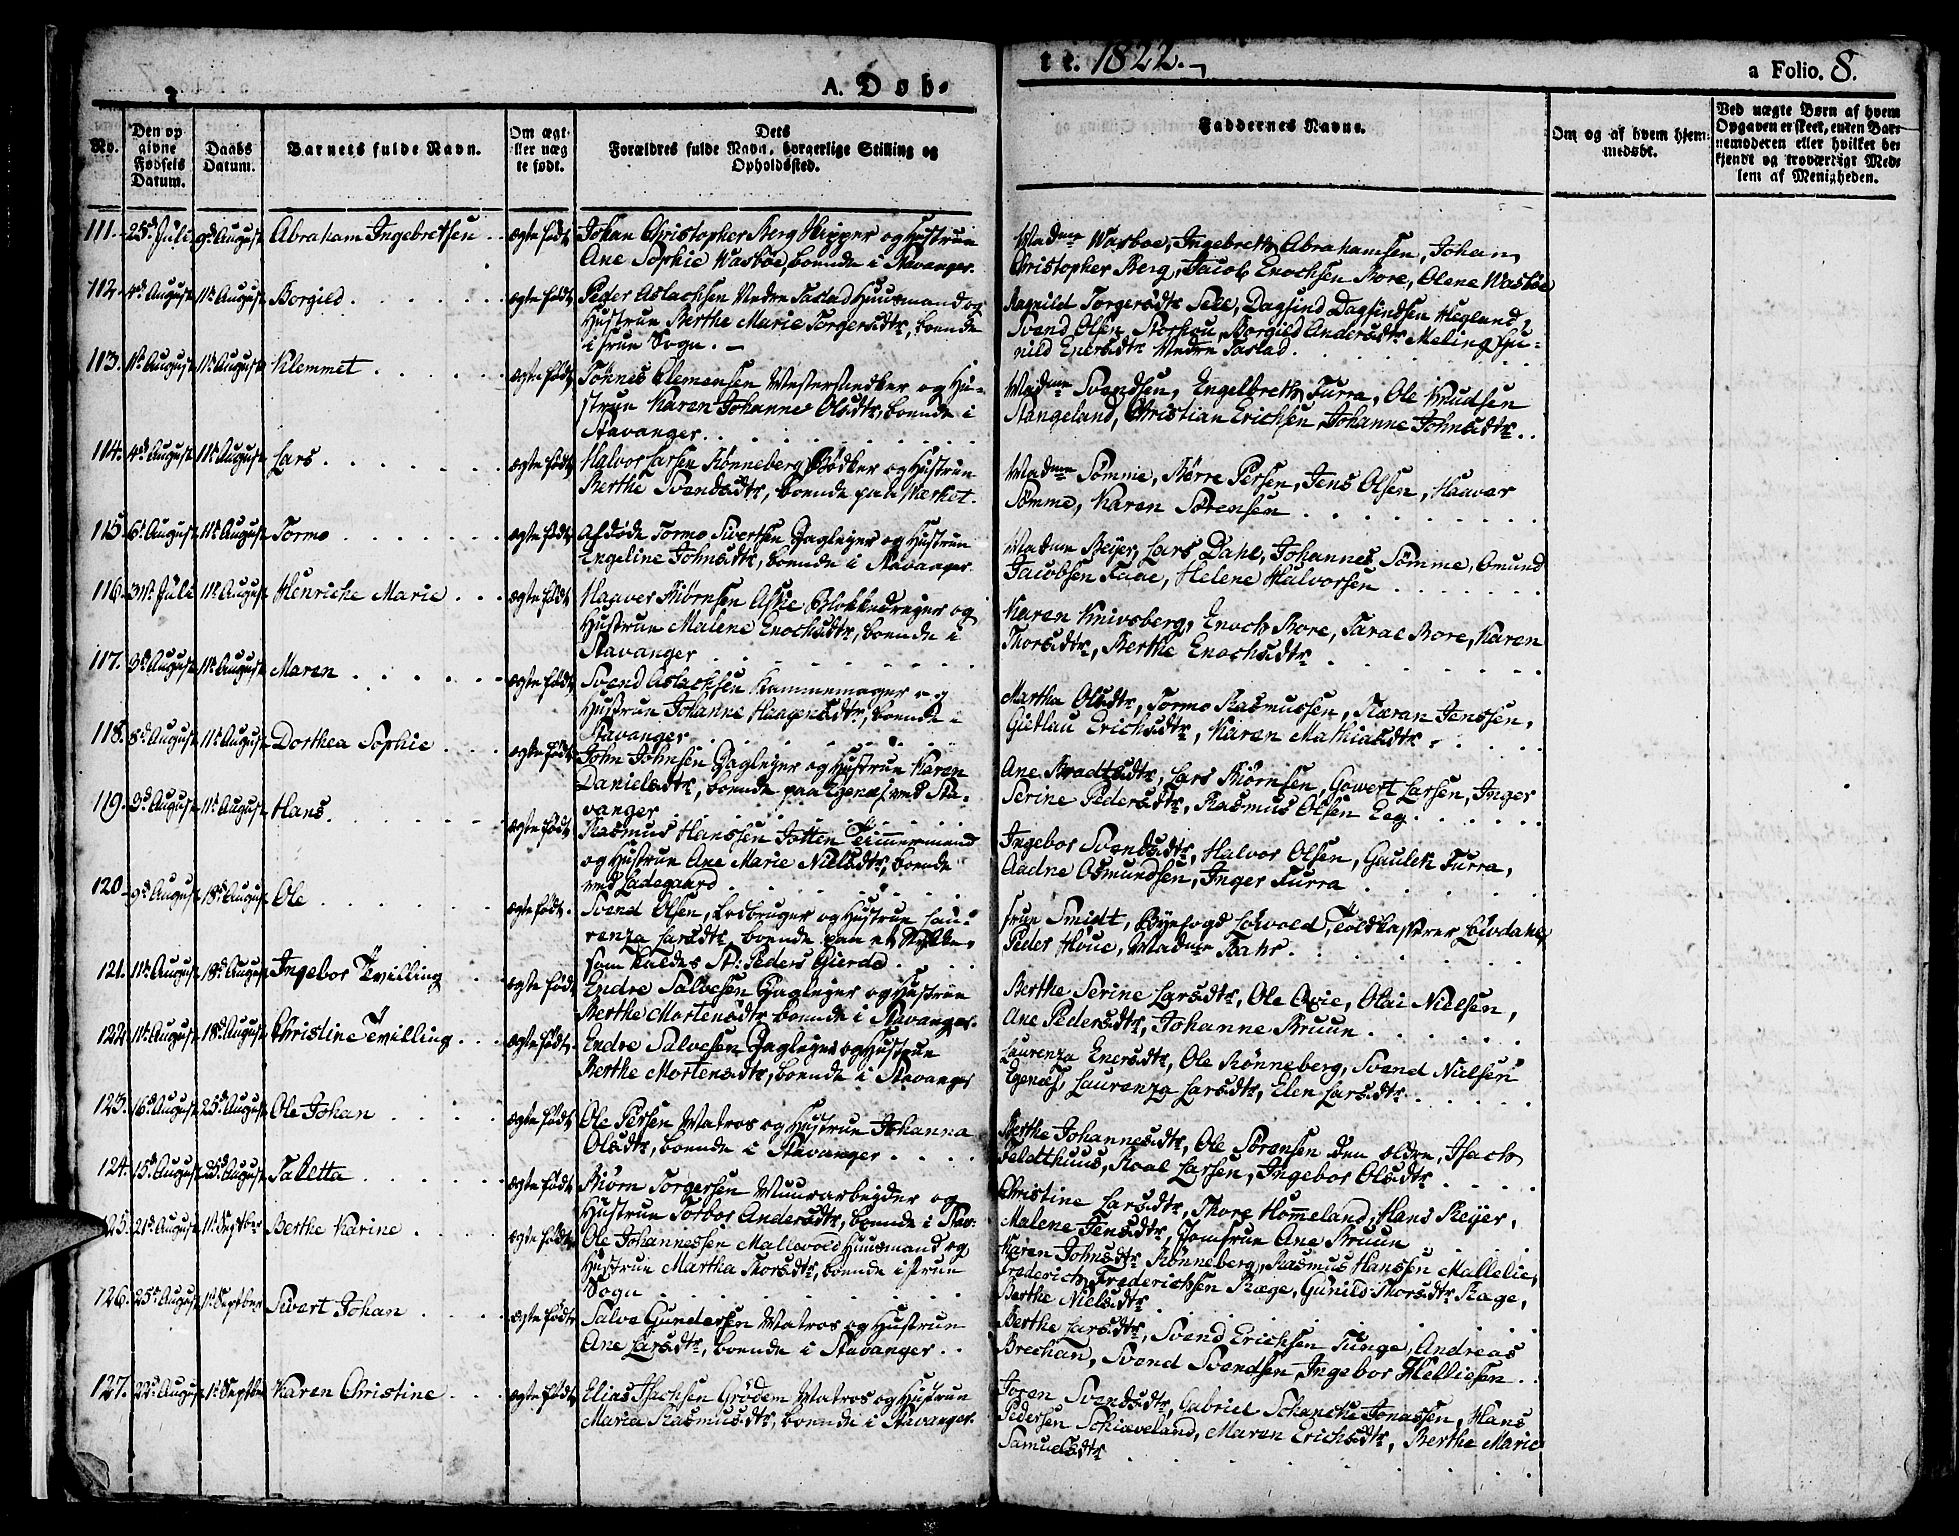 A. Døb-
te. 1822.
a Folio. 8.
No.
Den op
givne
Fødsels
Datum.
Daabs
Datum.
Barnets fulde Navn.
Om ægt-
eller uæg
te født.
Dets
Forældres fulde Navn, borgerlige Stilling og
Opholdssted.
Faddernes Navne.
Om og af hvem hjem-
medøbt.
Ved uægte Børn af hvem
Opgaven er skeet, enten Bar-
nemoderen eller hvilket be-
kjendt og troværdigt Med-
lem af Menigheden.
111. 25d Juli 9d August Abraham Ingebretsen ægte født
Johan Christopher Berg Skipper og Hustrue
Ane Sophie Wasbøe, boende i Stavanger.
Madme Wasboe, Ingebreth Abrahamsen, Johan
Christopher Berg, Jacob Enochsen Bore, Olene Wasbøe
112. 4d August 11te August Borgild ægte født
Peder Aslachsen Nedre Tastad Huusmand og
Hustrue Berthe Marie Torgersdtr, boende
i Frue Sogn.
Ragnild Torgersdtr Sele, Dagfind Dagfindsen Hegland,
Svend Olsen Storhou, Borgild Andersdtr Meling, Gu-
nild Enersdtr Nedre Tastad.
113. 1te August 11te August Klemmet ægte født
Tønnes Clemensen Mestersnedker og Hu-
strue Karen Johanne Olsdtr, boende i
Stavanger.
Madme Svendsen, Engelbreth Furra, Ole Knudsen
Stangeland, Christian Erichsen, Johanne Johnsdtr.
114. 4d August 11te August Lars ægte født
Halvor Larsen Rønneberg Bødker og Hustrue
Berthe Svendsdtr, boende paa Verket.
Madme Sømme, Børre Persen, Jens Olsen, Haaver
Sømme, Karen Sørensen
115. 6te August 11te August Tormo ægte født
Afdøde Tormo Sivertsen Dagleyer og Hustrue
Engeline Johnsdtr, boende i Stavanger.
Madme Beyer, Lars Dahl, Johannes Sømme, Omund
Jacobsen Faae, Helene Halvorsen
116. 31te Juli 11te August Henriche Marie ægte født
Haaver Biørnsen Aske Blokkedreyer og
Hustrue Malene Enochsdtr, boende i
Stavanger
Karen Knivsberg, Enoch Bore, Taral Bore, Karen
Thorsdtr, Berthe Enochsdtr
117. 3d August 11te August Maren ægte født
Svend Aslachsen Kammemager og
Hustrue Johanne Haagensdtr, boende i
Stavanger
Martha Olsdtr, Tormo Rasmussen, Karen Jenssen,
Gietlau Erichsdtr, Karen Mathiasdtr
118. 8d August 11te August Dorthea Sophie ægte født
John Johnsen Dagleyer og Hustrue Karen
Danielsdtr, boende paa Egenæs ved Sta-
vanger
Ane Bradtsdtr, Lars Biørnsen, Gowert Larsen, Inger
Serine Pedersdtr, Rasmus Olsen Eeg.
119. 3d August 11te August Hans ægte født
Rasmus Hanssen Jotten Tømmermand
og Hustrue Ane Marie Nielsdtr, boende
ved Ladegaard
Ingebor Svendsdtr, Halvor Olsen, Gauleh Furra,
Aadne Osmundsen, Inger Furra
120. 9d August 18d August Ole ægte født
Svend Olsen, Lodbruger og Hustrue Lau-
renza Larsdtr, boende paa et Stykke,
som kaldes St: Peders Gierde
Frue Smidt, Byefogd Løwold, Toldkasserer Livdahl,
Peder Houe, Madme Bahr
121. 11te August 18d August Ingebor Tvilling ægte født
Endre Salvesen Dagleyer og Hustrue
Berthe Mortensdtr boende i Stavanger.
Berthe Serine Larsdtr, Ole Oxie, Olai Nielsen,
Ane Pedersdtr, Johanne Bruun
122. 11te August 18d August Christine Tvilling ægte født
Endre Salvesen Dagleyer og Hustrue
Berthe Mortensdtr, boende i Stavanger
Laurenza Enersdtr, Ole Rønneberg, Svend Nielsen
Egenæs, Laurenza Larsdtr, Elen Larsdtr
123. 16d August 25d August Ole Johan ægte født
Ole Persen Matros og Hustrue Johanna
Olsdtr, boende i Stavanger
Berthe Johannesdtr, Ole Sørensen den ældre, Isach
Feldthuus, Roal Larsen, Ingebor Olsdtr
124. 15d August 25d August Taletta ægte født
Biørn Torgersen Muurarbeyder og
Hustrue Torbor Andersdtr, boende i Stav:
Christine Larsdtr, Thore Hommeland, Hans Reyer,
Malene Jensdtr, Jomfrue Ane Bruun
125. 21d August 1te Septber Berthe Karine ægte født
Ole Johannessen Mallevold Huusmand og
Hustrue Martha Thorsdtr, boende i Frue
Sogn
Karen Johnsdtr Rønneberg, Rasmus Hanssen Mallelie,
Frederich Frederichsen Ræge, Gunild Thorsdtr Ræge,
Berthe Nielsdtr
126. 25d August 1te Septber Sivert Johan ægte født
Salve Gundersen Matros og Hustrue
Ane Larsdtr, boende i Stavanger
Berthe Larsdtr, Svend Erichsen Tunge, Andreas
Brechan, Svend Svendsen, Ingebor Helliesen
127. 22d August 1te Septber Karen Christine ægte født
Elias Isachsen Grødem Matros og Hustrue
Maria Rasmusdtr, boende i Stavanger.
Joren Svendsdtr, Gabriel Schanche Jonassen, Hans
Pedersen Schiæveland, Maren Erichsdtr, Berthe Marie
Samuelsdtr